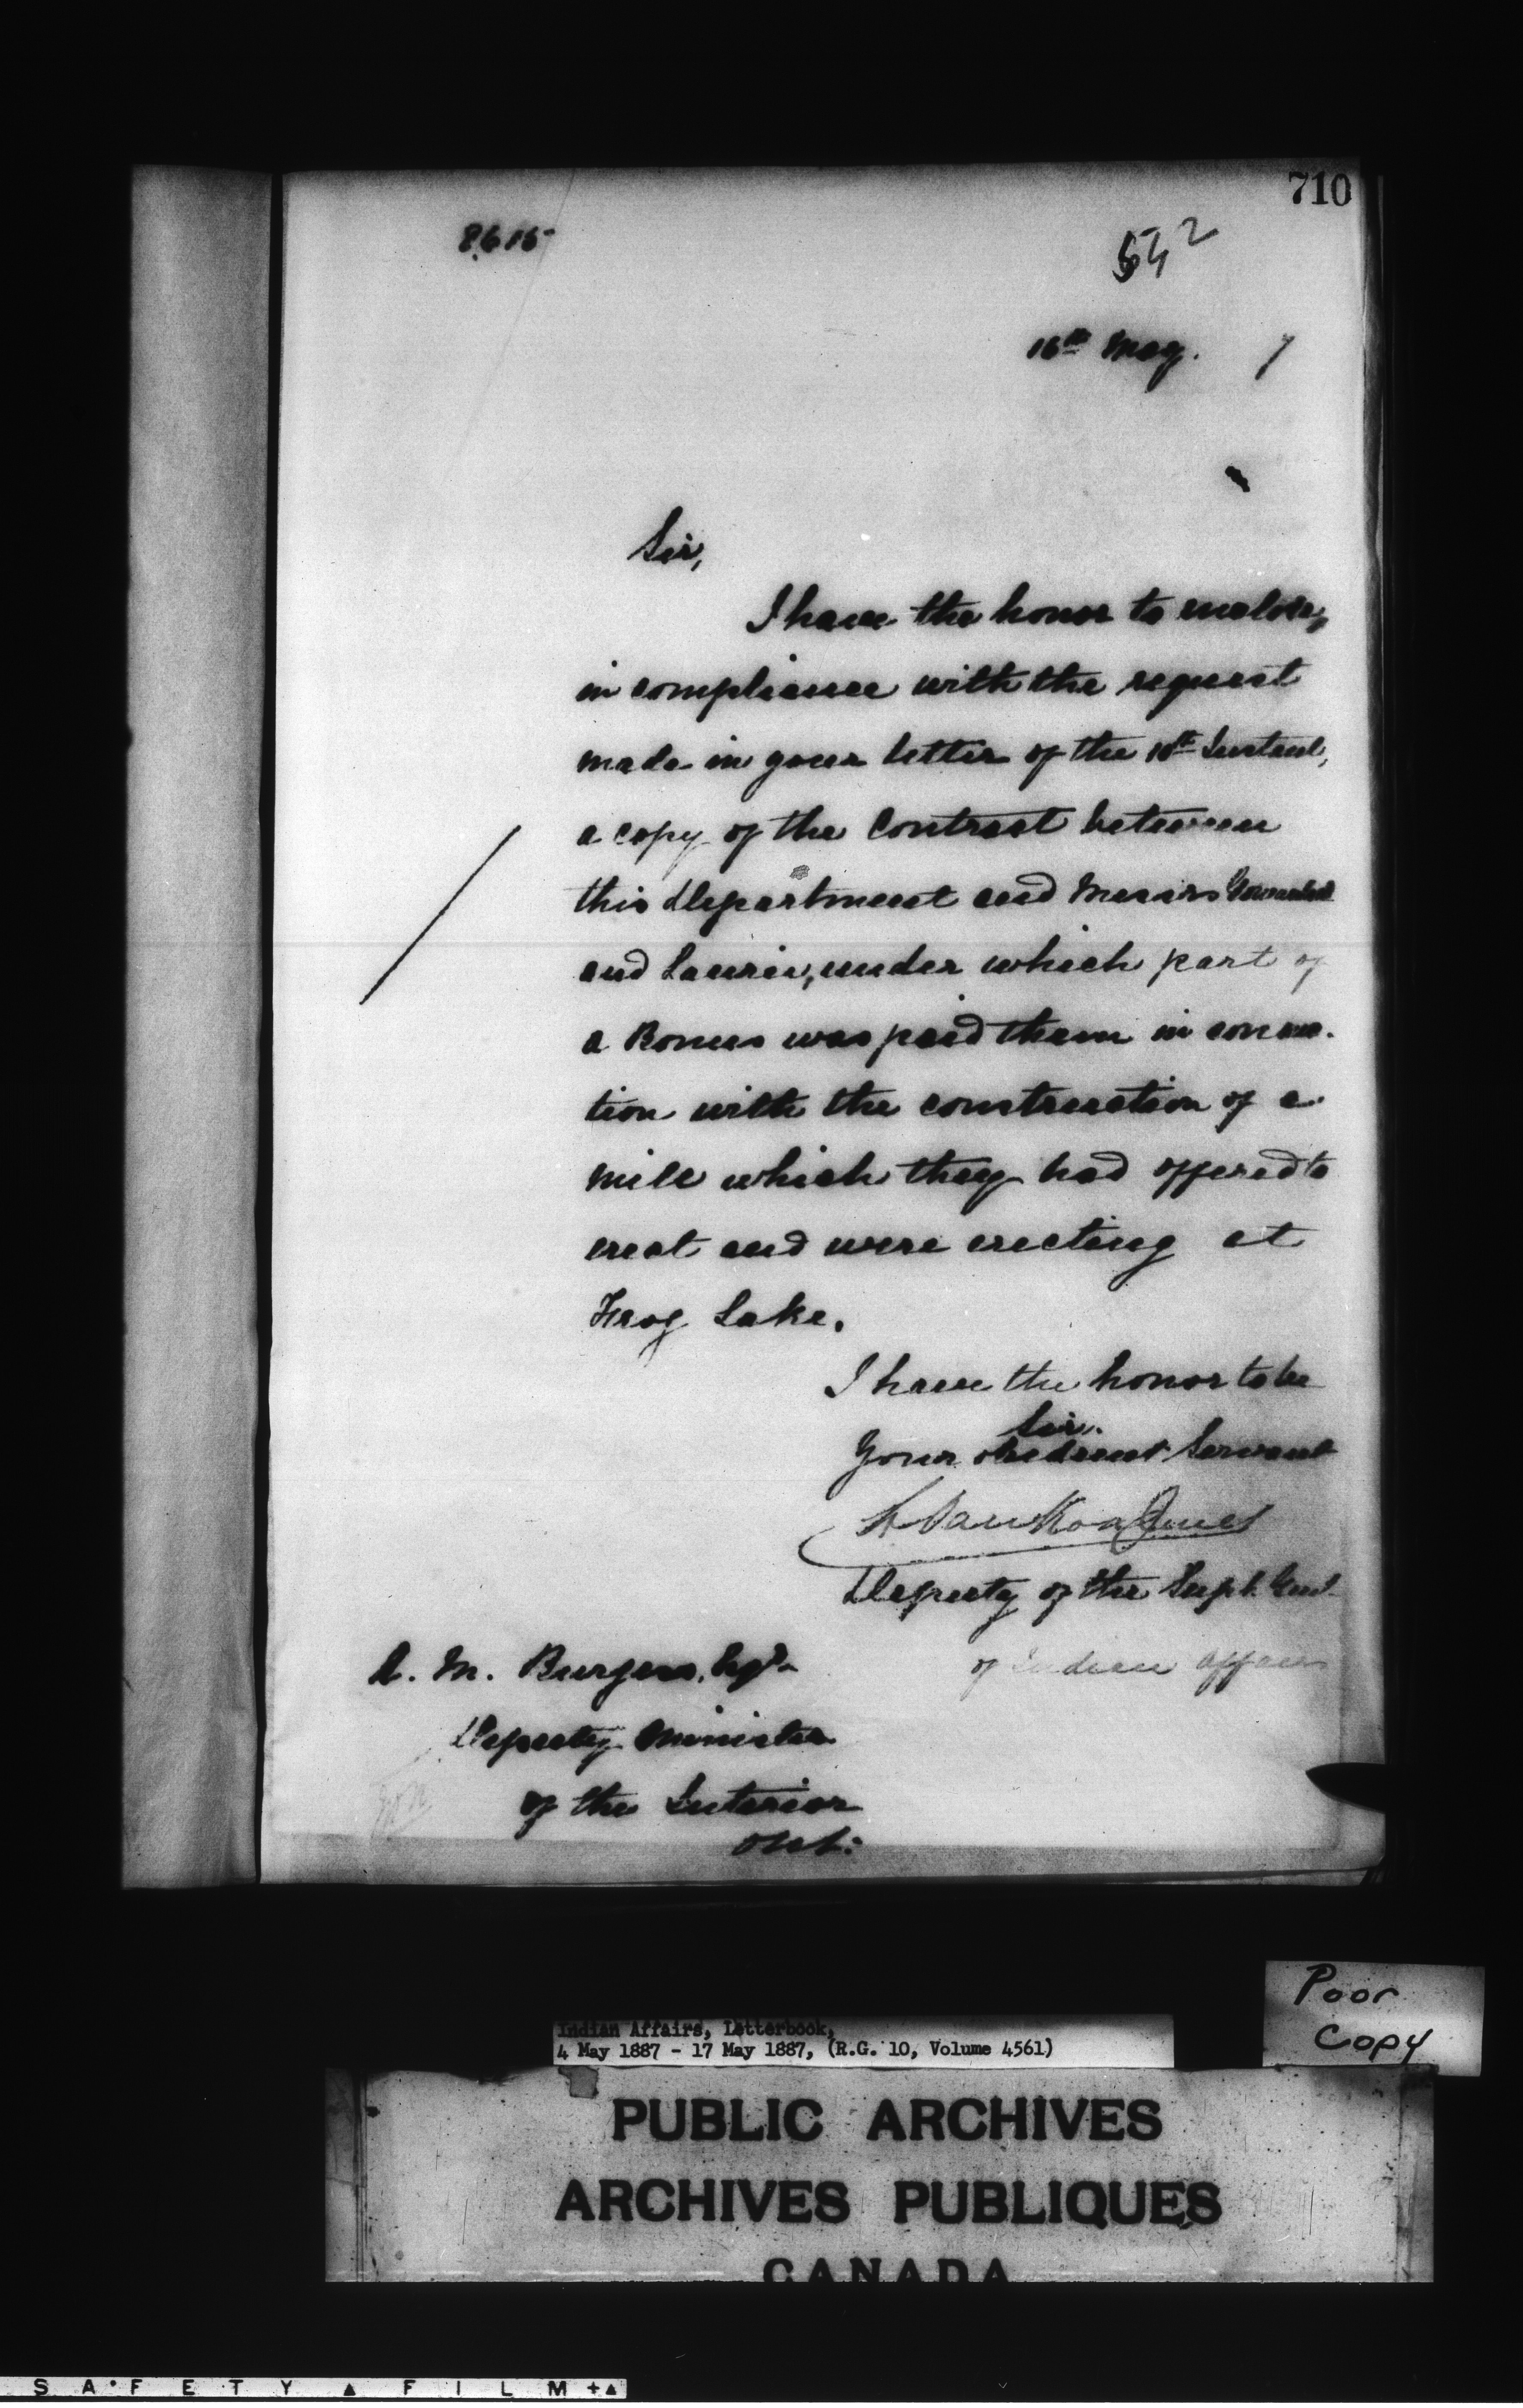 710
8615
542
16th May. 7
Sir,
I have the honor to enclose,
in compliance with the request
made in your letter of the 10th Instant,
a copy of the Contract between
this Department and Messrs Gowanlock
and Laurie, under which part of
a Bonus was paid them in connec-
tion with the construction of a
mill which they had offered to
erect and were erecting at
Frog Lake.
I have the honor to be
Sir.
Your obedient Servant
L. VanKoughnet
Deputy of the Supt. Genl
of Indian Affairs
A. M. Burgess, Esqr
Deputy Minister
of the Interior
Ott:
Poor
Copy
Indian Affairs, Letterbook,
4 May 1887 - 17 May 1887, (R.G. 10, Volume 4561)
PUBLIC ARCHIVES
ARCHIVES PUBLIQUES
CANADA
SAFETY FILM